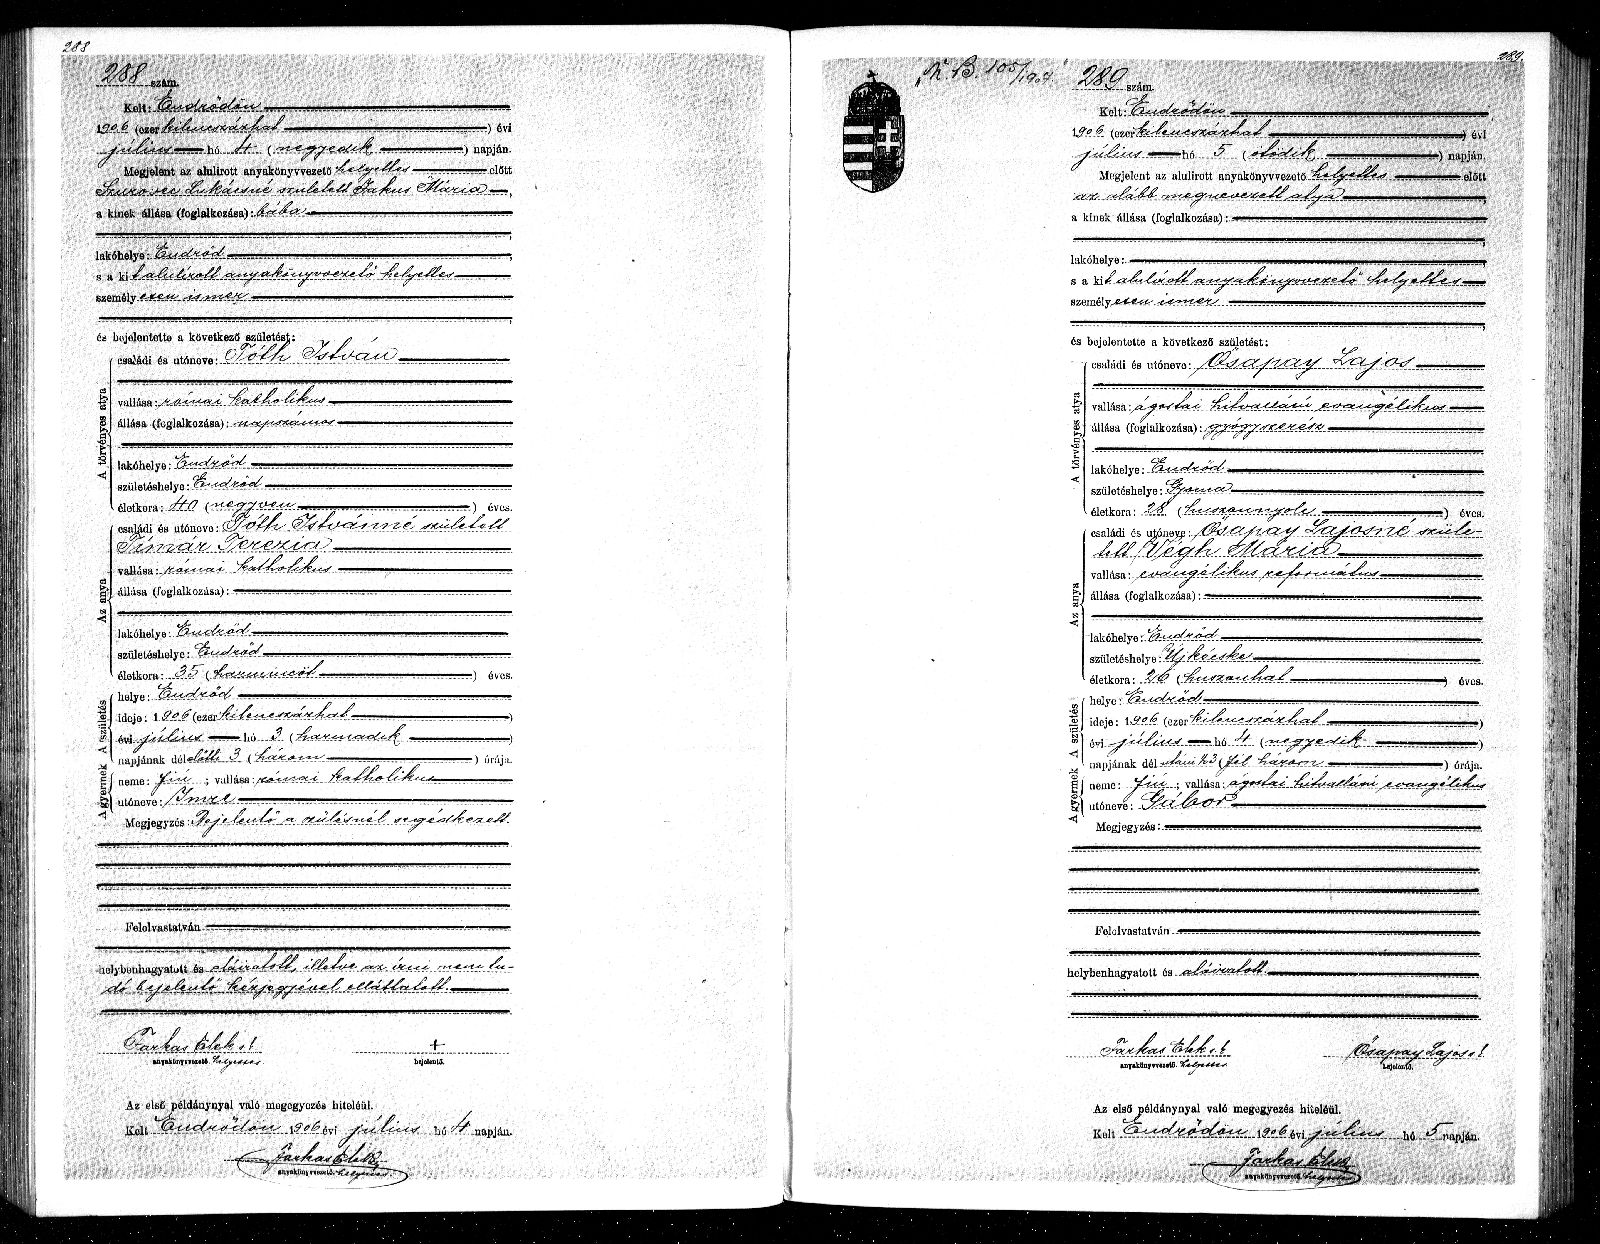 288
288 szám.
Kelt: Endrődön
1906 (ezerkilencszázhat) évi
július hó 4 (negyedik) napján.
Megjelent az alulirott anyakönyvvezető helyettes előtt
Lukácsné született Jakus Mária,
a kinek állása (foglalkozása): bába
lakóhelye: Endrőd
s a kit alulírott anyakönyvvezető helyettes
személyesen ismer
és bejelentette a következő születést:
A törvényes atya
családi és utóneve: Tóth István
vallása: római katholikus
állása (foglalkozása): napszámos
lakóhelye: Endrőd
születéshelye: Endrőd
életkora: 40 (negyven) éves.
Az anya
családi és utóneve: Tóth Istvánné született
Tímár Terézia
vallása: római katholikus
állása (foglalkozása):
lakóhelye: Endrőd
születéshelye: Endrőd
életkora: 35 (harmincöt) éves.
A születés
helye: Endrőd
ideje: 1906 (ezerkilencszázhat)
évi július hó 3 (harmadik)
napjának délelőtti 3 (három) órája.
A gyermek
neme: fiú; vallása: római katholikus
utóneve: Imre
Megjegyzés: Bejelentő a szülésnél segédkezett.
Felolvastatván
helybenhagyatott és aláiratott, illetve az írni nem tu-
dó bejelentő kézjegyével elláttatott.
Farkas Elek s. k. +
anyakönyvvezető helyettes bejelentő.
Az első példánynyal való megegyezés hiteléül.
Kelt Endrődön 1906 évi július hó 4 napján.
Farkas Elek
anyakönyvvezető helyettes
289
289 szám.
Kelt: Endrődön
1906 (ezerkilencszázhat) évi
július hó 5 (ötödik) napján.
Megjelent az alulirott anyakönyvvezető helyettes előtt
az alább megnevezett atya
a kinek állása (foglalkozása):
lakóhelye:
s a kit alulírott anyakönyvvezető helyettes
személyesen ismer
és bejelentette a következő születést:
A törvényes atya
családi és utóneve: Csapay Lajos
vallása: ágostai hitvallású evangélikus
állása (foglalkozása): gyógyszerész
lakóhelye: Endrőd
születéshelye: Gyoma
életkora: 28 (huszonnyolc) éves.
Az anya
családi és utóneve: Csapay Lajosné szüle-
tett Végh Mária
vallása: evangélikus református
állása (foglalkozása):
lakóhelye: Endrőd
születéshelye: Ujkécske
életkora: 26 (huszonhat) éves.
A születés
helye: Endrőd
ideje: 1906 (ezerkilencszázhat)
évi július hó 4 (negyedik)
napjának délutáni ½3 (fél három) órája.
A gyermek
neme: fiú; vallása: ágostai hitvallású evangélikus
utóneve: Gábor
Megjegyzés:
Felolvastatván
helybenhagyatott és aláiratott.
Farkas Elek s. k. Csapay Lajos s. k.
anyakönyvvezető helyettes bejelentő.
Az első példánynyal való megegyezés hiteléül.
Kelt Endrődön 1906 évi július hó 5 napján.
Farkas Elek
anyakönyvvezető helyettes